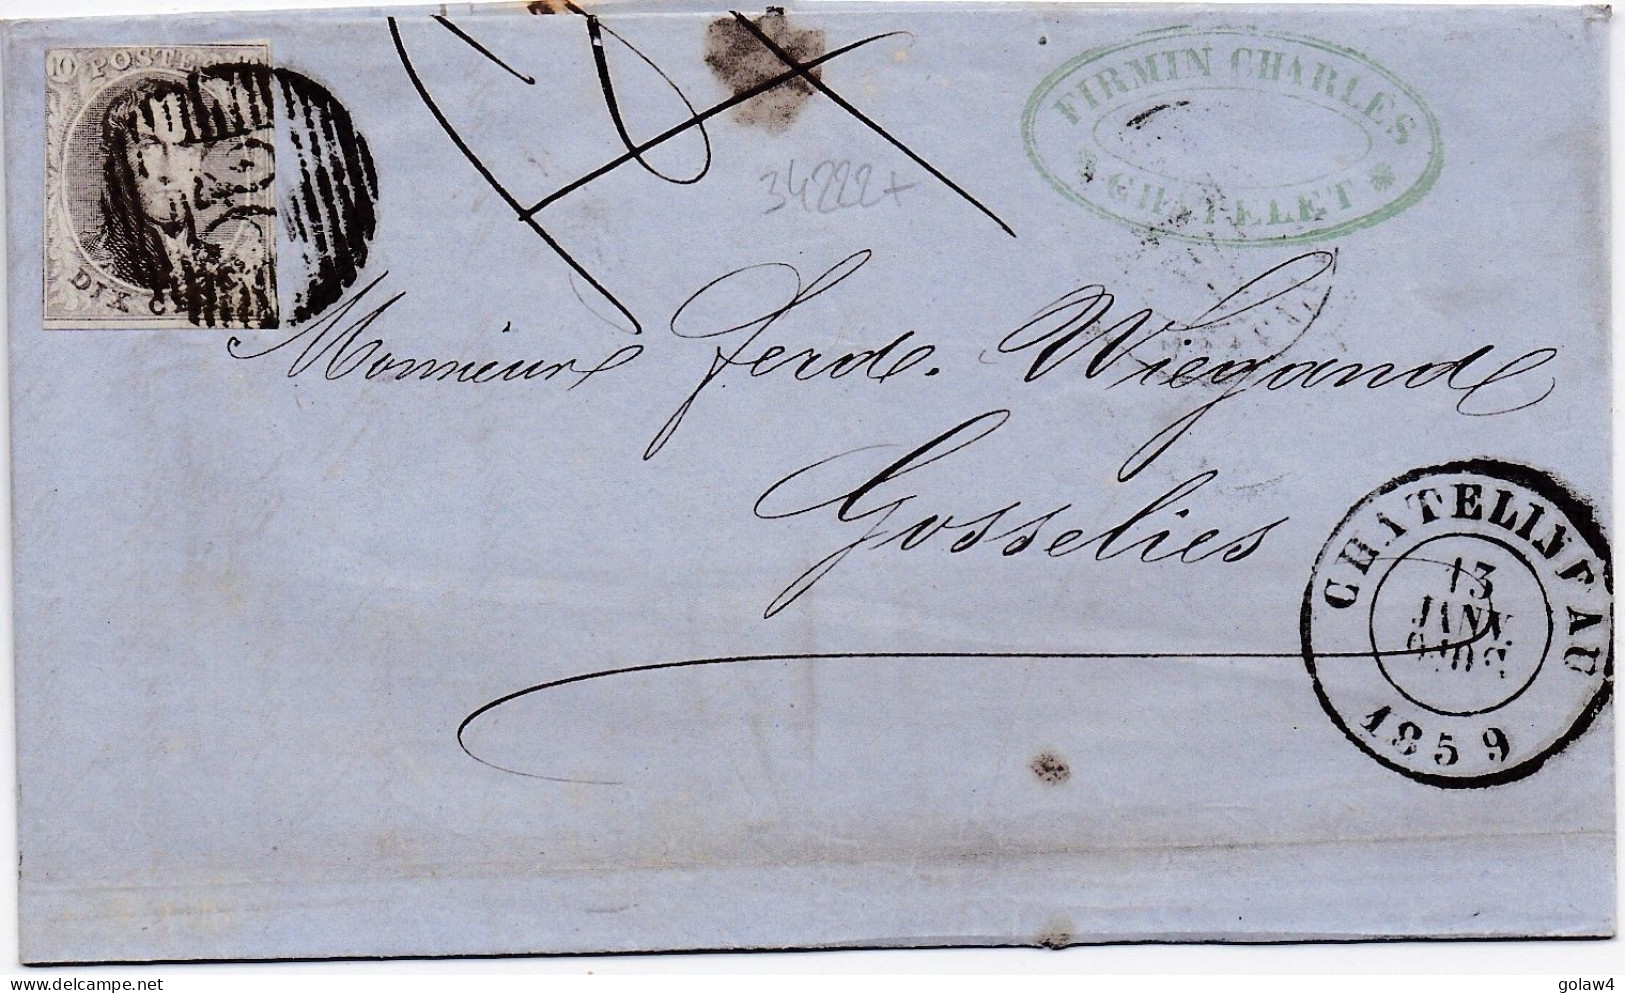 10 POSTES
DIX CENTS
FIRMIN CHARLES
* CHATELET *
34222+
Monsieur Ferd. Wiegand
Gosselies
CHATELINEAU
13
JANV.
1859
delcampe.net
golaw4